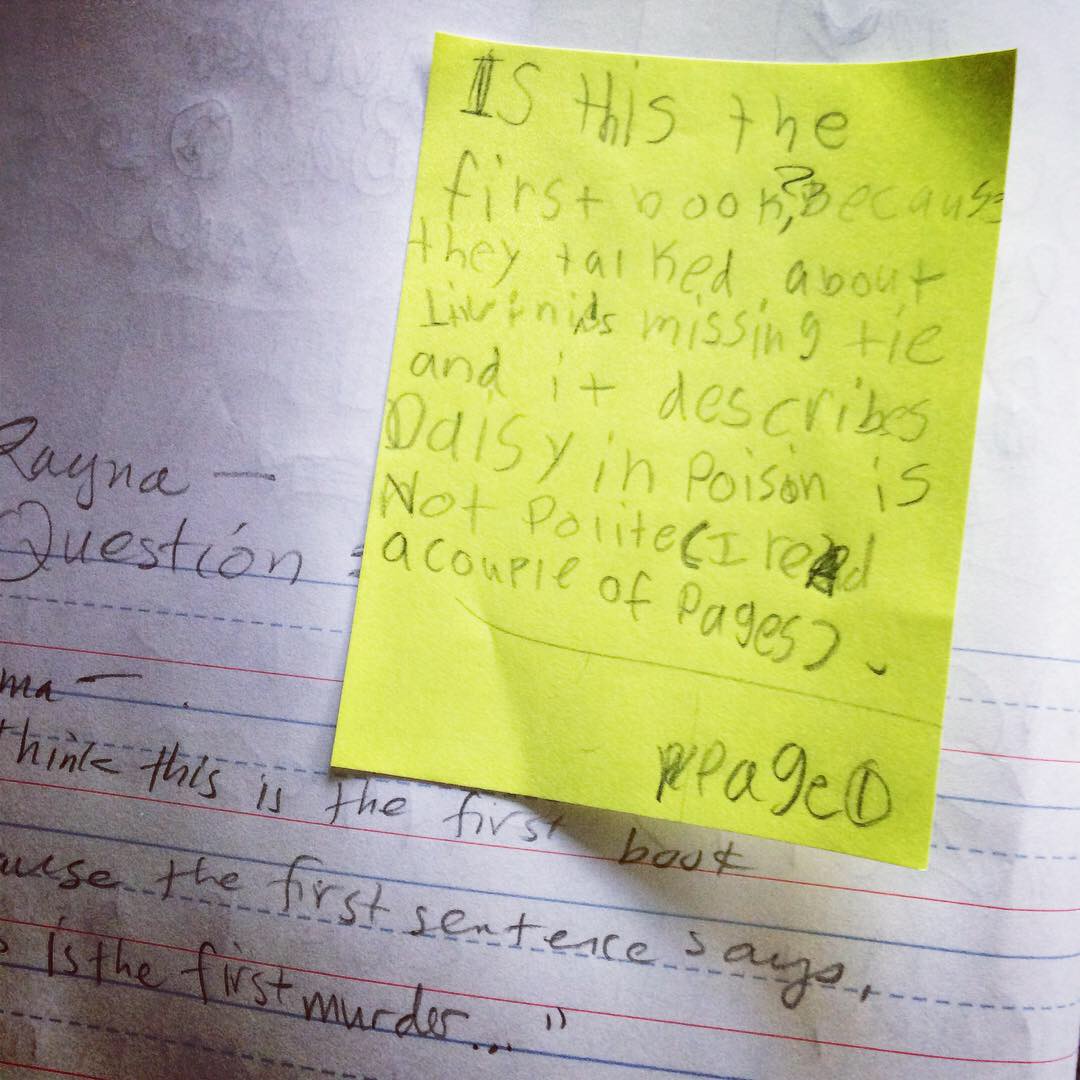 Is this the
first book? Because
they talked about
missing tie
and it describes
Daisy in Poison is
Not Polite (I read
a couple of Pages).
Page 1
Rayna —
Question :
ma —
think this is the first book
ause the first sentence says,
is the first murder..."